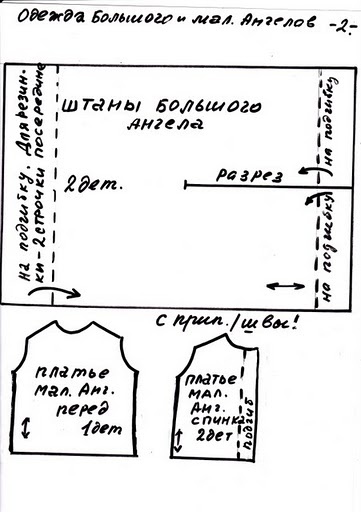 Одежда Большого и мал. Ангелов -2-
на подгибку. Для резин-
ки-2 строчки посередине
штаны большого
ангела
2дет.
разрез
на подгибку
на подгибку
с прип./швы!
платье
мал. Анг.
перед
1дет
платье
мал.
Анг.
спинка
2дет
подгиб